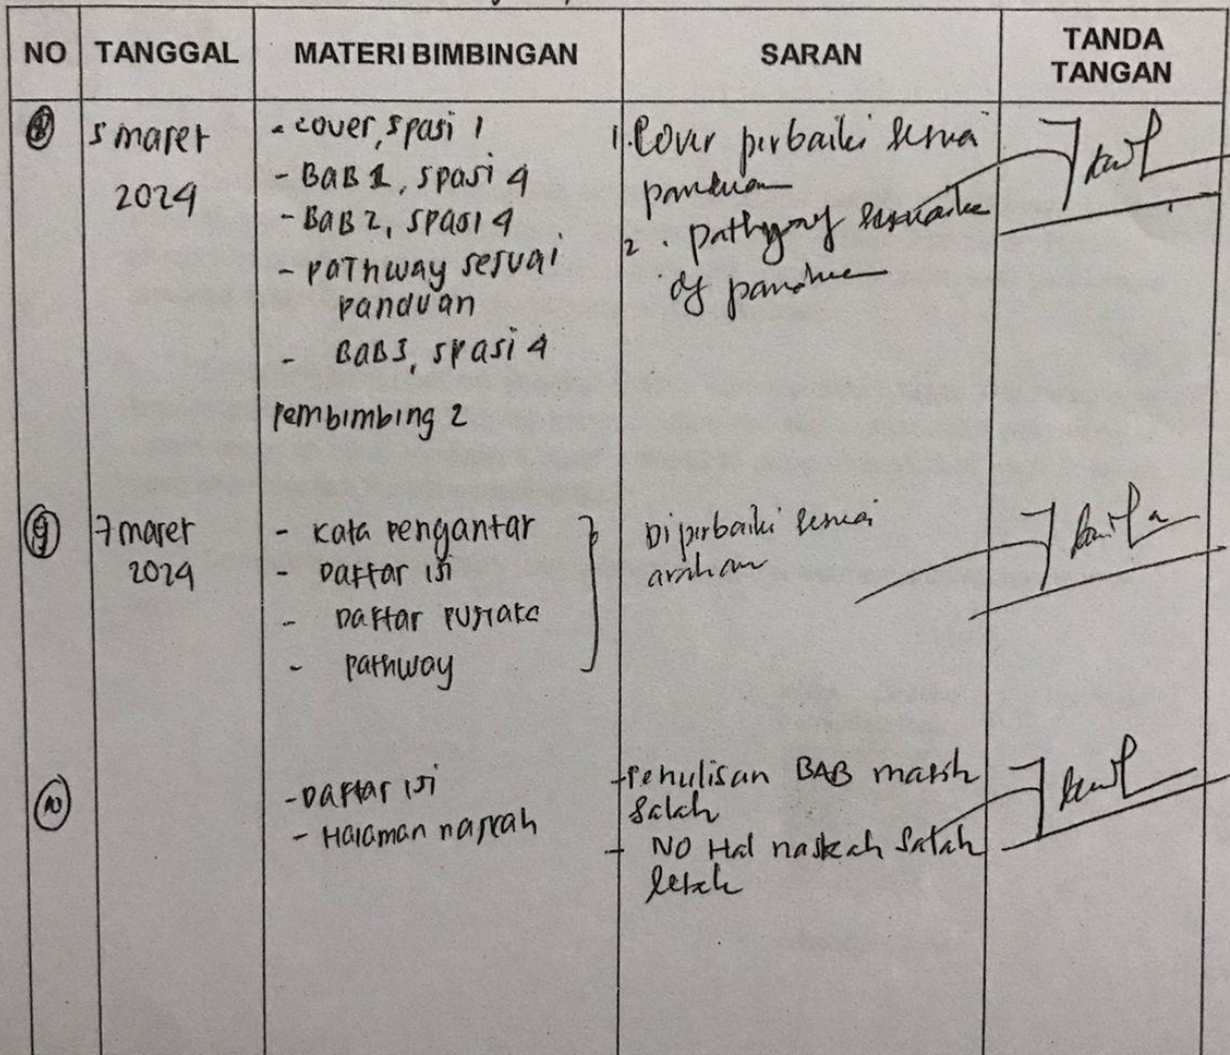 NO TANGGAL MATERI BIMBINGAN SARAN TANDA TANGAN
8 5 maret 2024
- cover, spasi 1
- BAB 1, spasi 4
- BAB 2, spasi 4
- pathway sesuai
panduan
- BAB 3, spasi 4
pembimbing 2
1. Cover perbaiki sesuai
panduan
2. pathway sesuaika
dg panduan
9 7 maret 2024
- Kata pengantar
- Daftar isi
- Daftar pustaka
- pathway
Diperbaiki sesuai
arahan
10
- Daftar isi
- Halaman naskah
- Penulisan BAB masih
salah
- NO Hal naskah salah
letak